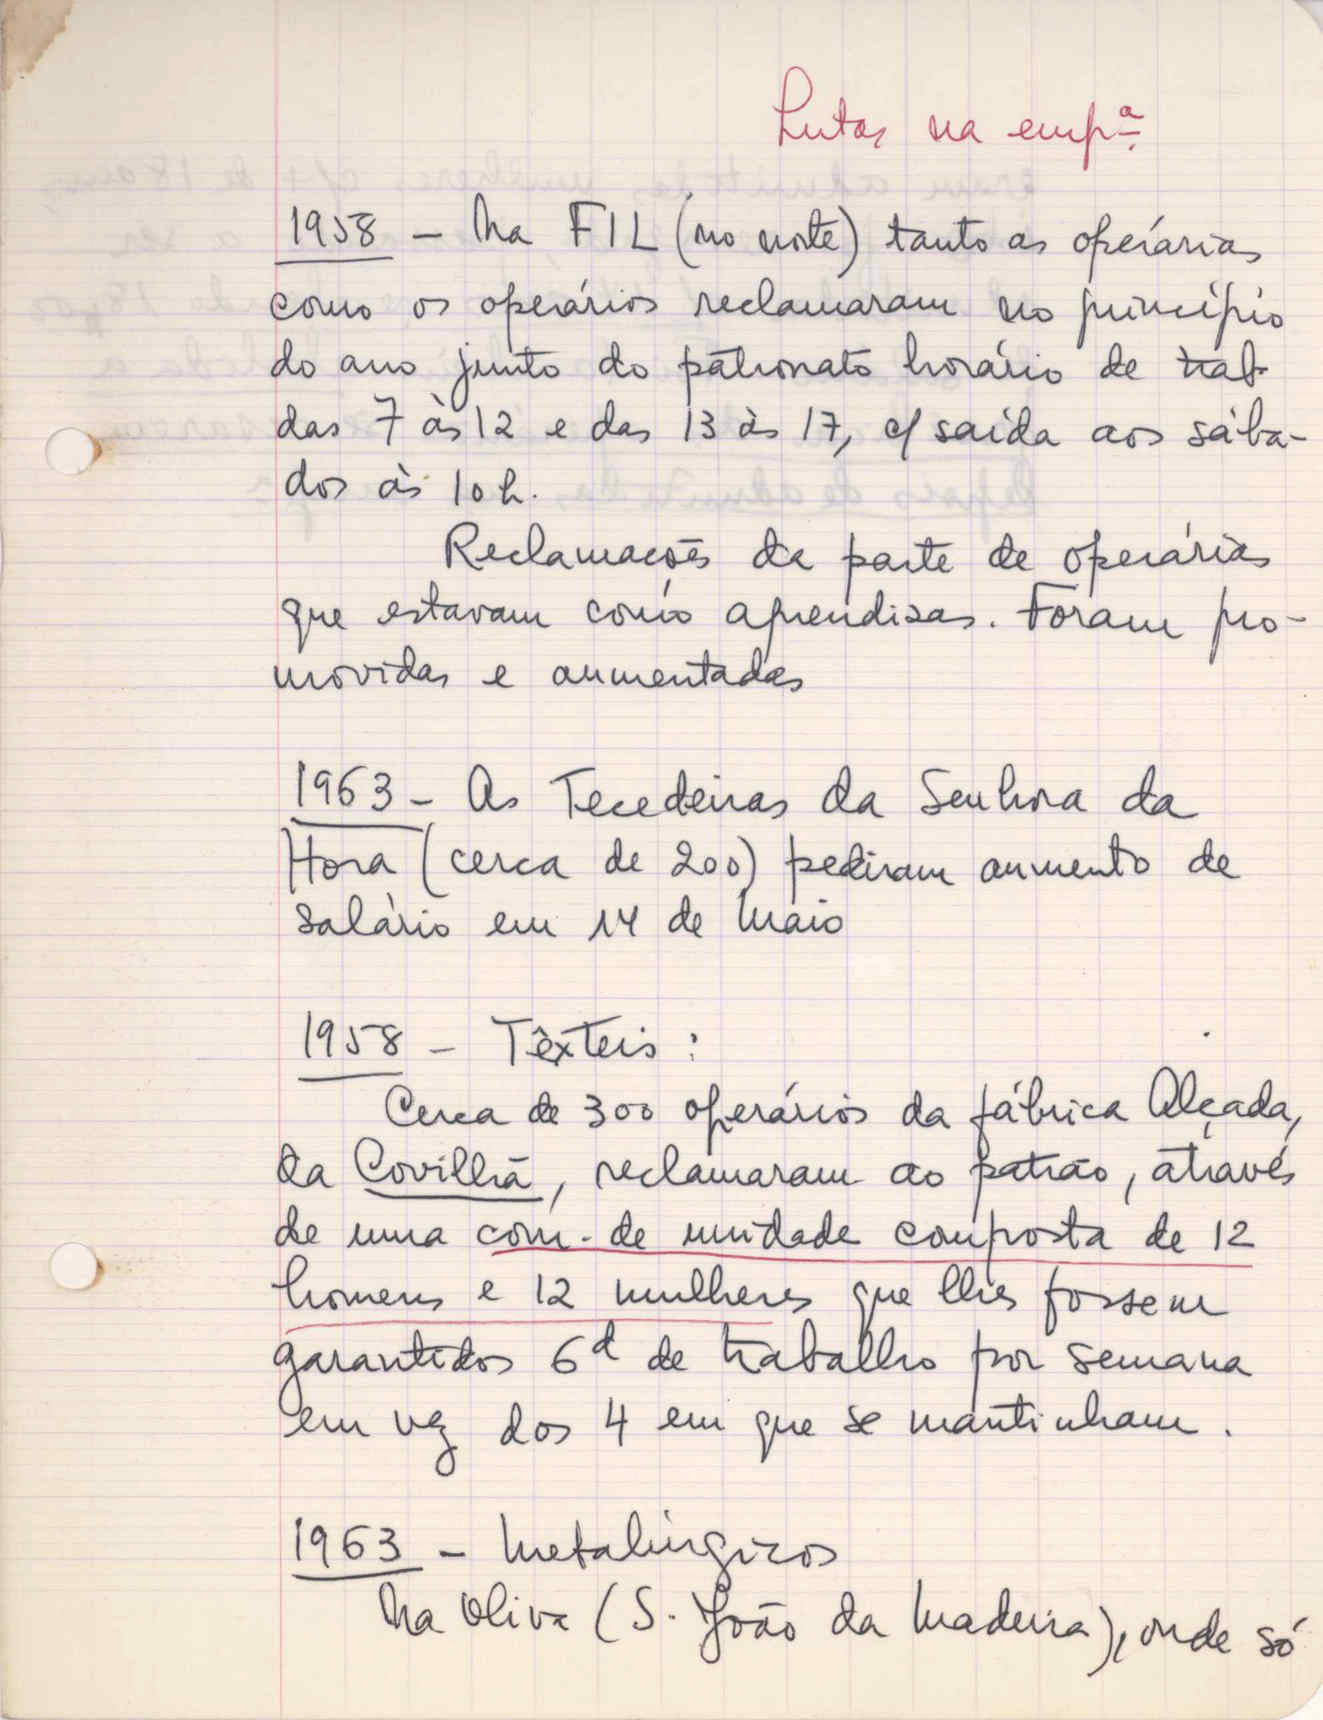 Lutas na empª.
1958 - Na FIL (no norte) tanto as operárias
como os operários reclamaram no princípio
do ano junto do patronato horário de trab
das 7 às 12 e das 13 às 17, c/ saída aos sába-
dos às 10 h.
Reclamações da parte de operárias
que estavam como aprendizas. Foram pro-
movidas e aumentadas
1963 - As Tecedeiras da Senhora da
Hora (cerca de 200) pediram aumento de
salário em 14 de Maio
1958 - Têxteis :
Cerca de 300 operários da fábrica Alçada,
da Covilhã, reclamaram ao patrão, através
de uma com. de unidade composta de 12
homens e 12 mulheres que lhes fossem
garantidos 6d de trabalho por semana
em vez dos 4 em que se mantinham.
1963 - Metalúrgicos
Na Oliva (S. João da Madeira), onde só